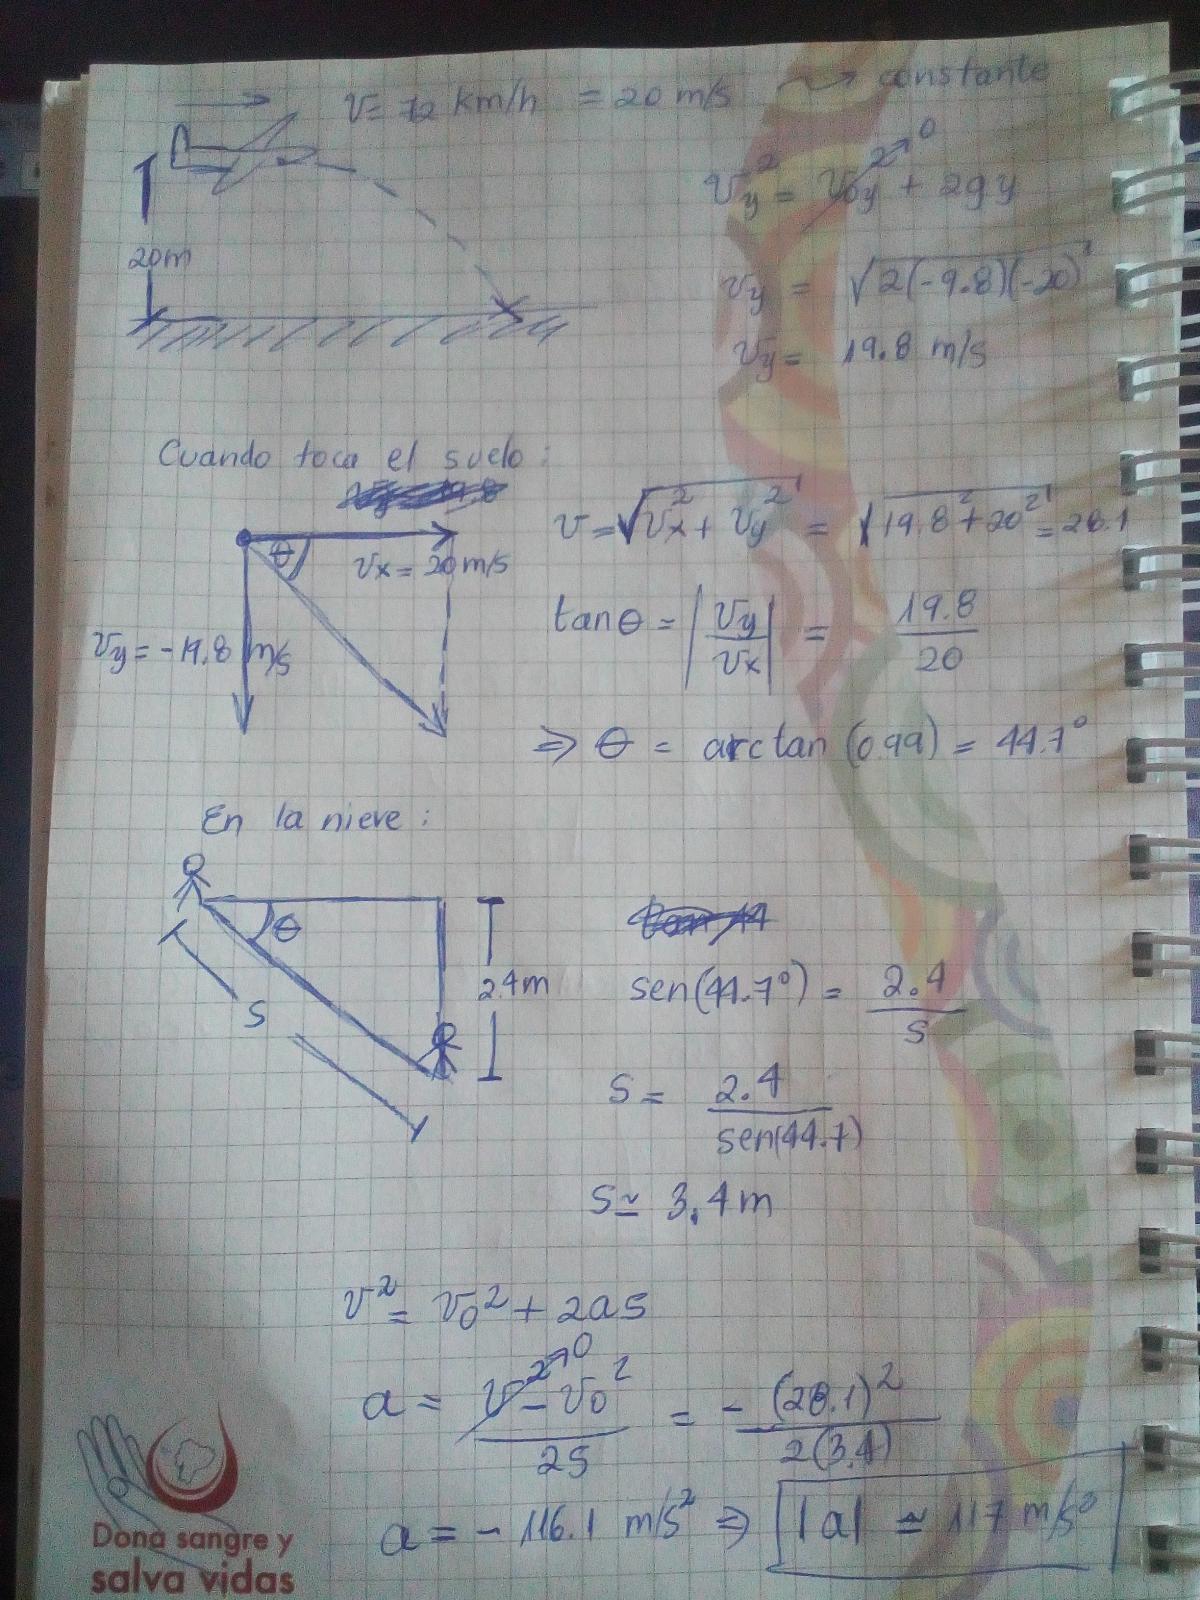 v = 72 km/h = 20 m/s ⤳ constante
20m
v_y² = v_0y²→0 + 2gy
v_y = √(2(-9.8)(-20))
v_y = 19.8 m/s
Cuando toca el suelo :
θ
v_x = 20 m/s
v_y = -19.8 m/s
v = √(v_x² + v_y²) = √(19.8² + 20²) = 28.1
tan θ = |v_y / v_x| = 19.8 / 20
⇒ θ = arctan (0.99) = 44.7°
En la nieve :
θ
2.4m
S
sen(44.7°) = 2.4 / S
S = 2.4 / sen(44.7)
S ≃ 3.4 m
v² = v_0² + 2as
a = (v²→0 - v_0²) / 2S = - (28.1)² / 2(3.4)
a = - 116.1 m/s² ⇒ |a| ≃ 117 m/s²
Dona sangre y
salva vidas